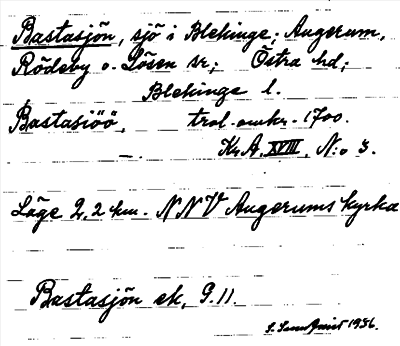 Bastasjön, sjö i Blekinge; Augerum,
Rödeby o. Lösen sr; Östra hd;
Blekinge l.
Bastasiöö, trol. omkr. 1700.
KrA. XVIII, N:o 3.
Läge 2,2 km. NNV Augerums kyrka
Bastasjön ek, 9.11.
1936.